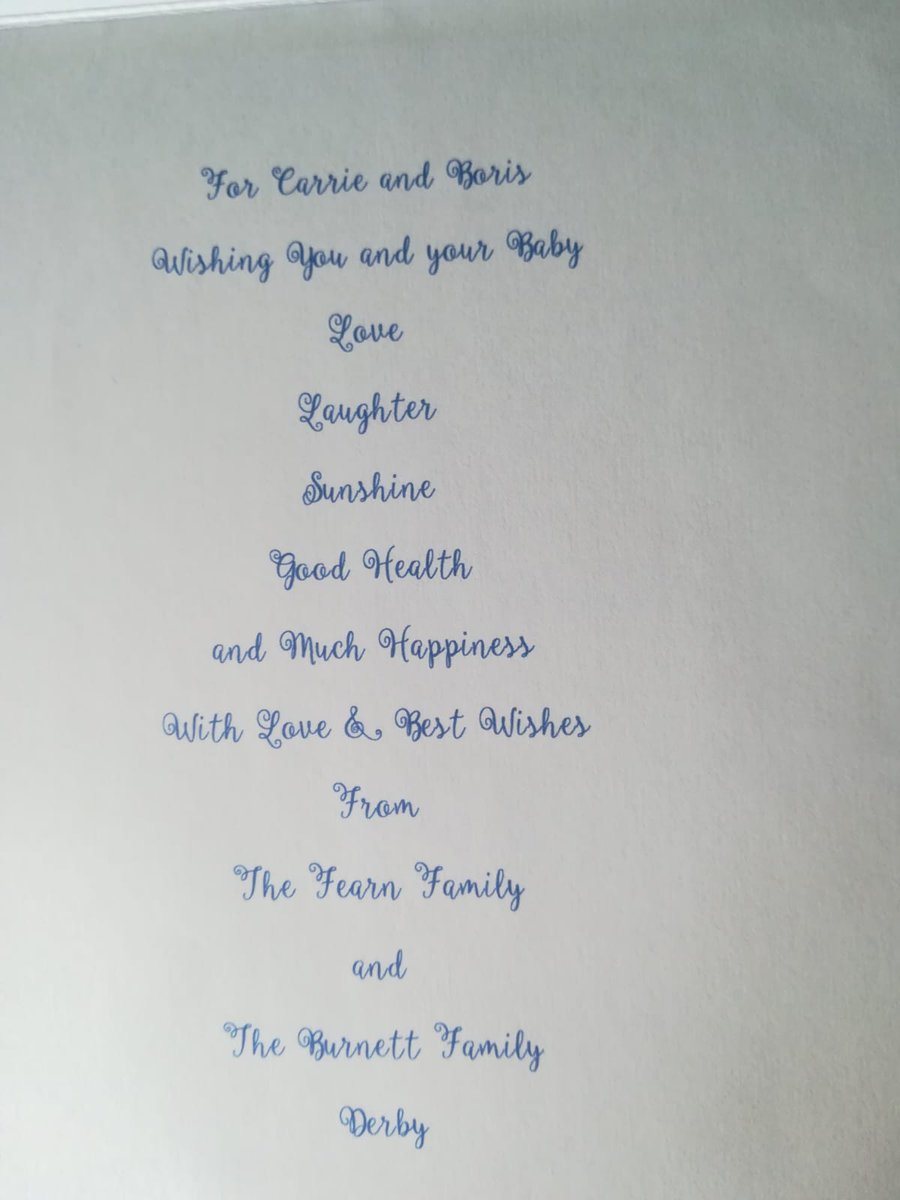 For Carrie and Boris
Wishing You and your Baby
Love
Laughter
Sunshine
Good Health
and Much Happiness
With Love & Best Wishes
From
The Fearn Family
and
The Burnett Family
Derby